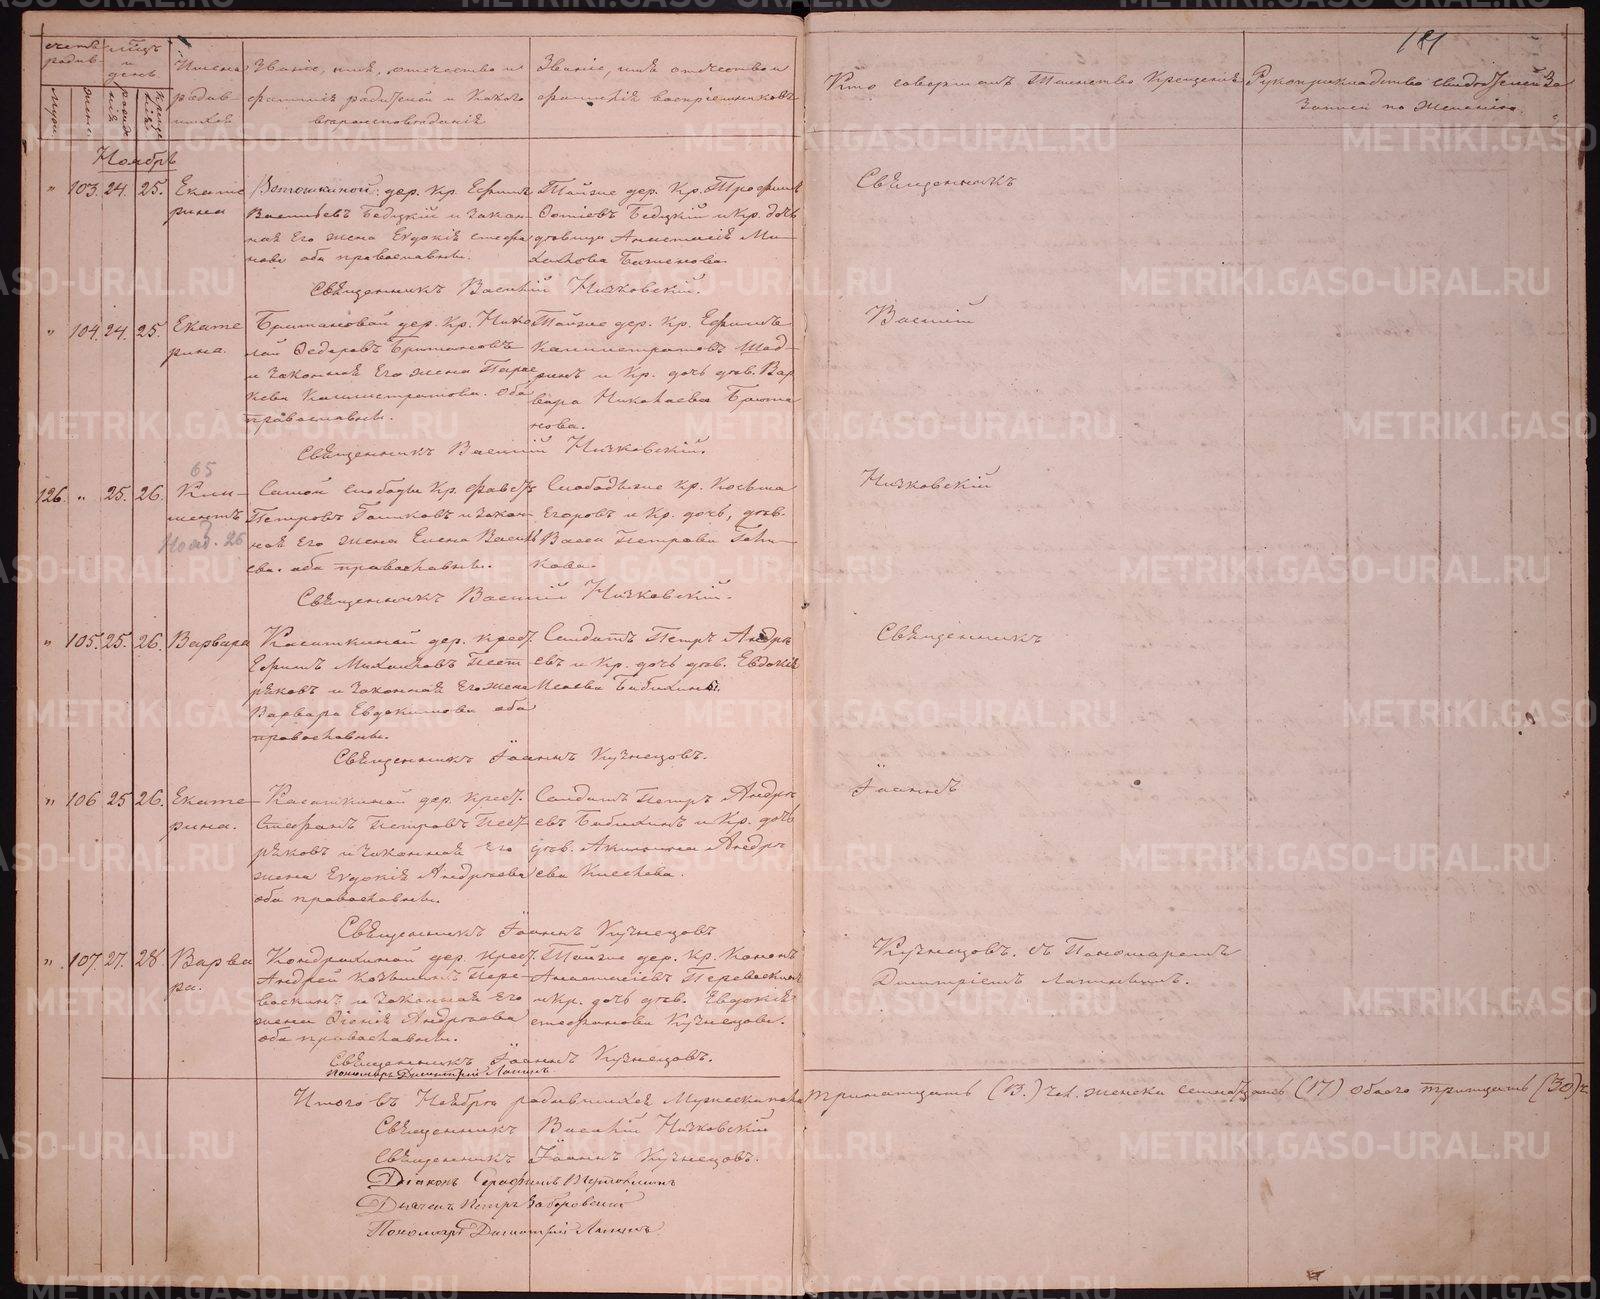 181
Счетъ родив.
Мѣсяцъ и день
Имена родившихся
Званіе, имя, отечество и фамилія родителей и какого вѣроисповѣданія
Званіе, имя отечество и фамилія воспріемниковъ
Кто совершалъ Таинство Крещенія
Рукоприкладство свидѣтелей записи по желанію.
Ноябрь
" 103. 24. 25. Екате
рина
Ветошкиной дер. Кр. Ефимъ
Васильевъ Бедцкій и закон-
ная Его жена Евдокія Стефа
нова оба православны.
Тойже дер. Кр. Трофимъ
Фотіевъ Бедцкій и Кр. дочь
дѣвица Анастасія Ми-
хайлова Баженова.
Священникъ Василій Низковскій.
" 104. 24. 25. Екате
рина.
Британовой дер. Кр. Нико
лай Ѳедоровъ Британовъ
и законная Его жена Парас
кева Каллистратова. Оба
православны.
Тойже дер. Кр. Ефимъ
Каллистратовъ Шад-
ринъ и Кр. дочь дѣв. Вар
вара Николаева Брита
нова.
Священникъ Василій Низковскій.
65
126. " 25. 26. Кли-
ментъ
Нояб. 25
Самой слободы Кр. Фавстъ
Петровъ Гашковъ и закон-
ная Его жена Елена Василь
ева. оба православны.
Слободы же Кр. Косьма
Егоровъ и Кр. дочь, дѣв.
Васса Петрова Гаш-
кова.
Священникъ Василій Низковскій.
" 105. 25. 26. Варвара
Касаткиной дер. крест.
Ефимъ Михайловъ Пест
ряковъ и законная Его жена
Варвара Евдокимова оба
православны.
Солдатъ Петръ Андре
евъ и Кр. дочь дѣв. Евдокія
Исаева Бабихины.
Священникъ Іоаннъ Кузнецовъ.
" 106 25 26. Екате-
рина.
Касаткиной дер. крест.
Стефанъ Петровъ Пест
ряковъ и законная Его
жена Евдокія Андреева
оба православны.
Солдатъ Петръ Андре
евъ Бабихинъ и Кр. дочь
дѣв. Акилина Андре
ева Киселева.
Священникъ Іоаннъ Кузнецовъ
" 107. 27. 28. Варва
ра.
Кондрахиной дер. крест.
Андрей Козьминъ Пере-
васкинъ и законная Его
жена Ѳіонія Андреева
оба православны.
Тойже дер. Кр. Кононъ
Анастасіевъ Переваскинъ
и Кр. дочь дѣв. Евдокія
Стефанова Кузнецова.
Священникъ Іоаннъ Кузнецовъ.
Пономарь Димитрій Лапинъ
Итого въ Ноябрѣ родившихся Мужескаго пола тринатцать (13.) чел. женска семнатцать (17) обоего тритцать (30) ч.
Священникъ Василій Низковскій
Священникъ Іоаннъ Кузнецовъ.
Діаконъ Серафимъ
Дьячекъ Петръ Заборовскій
Пономарь Димитрій Лапинъ
Священникъ
Василій
Низковскій
Священникъ
Іоаннъ
Кузнецовъ. съ Пономаремъ
Димитріемъ Лапинымъ.
METRIKI.GASO-URAL.RU